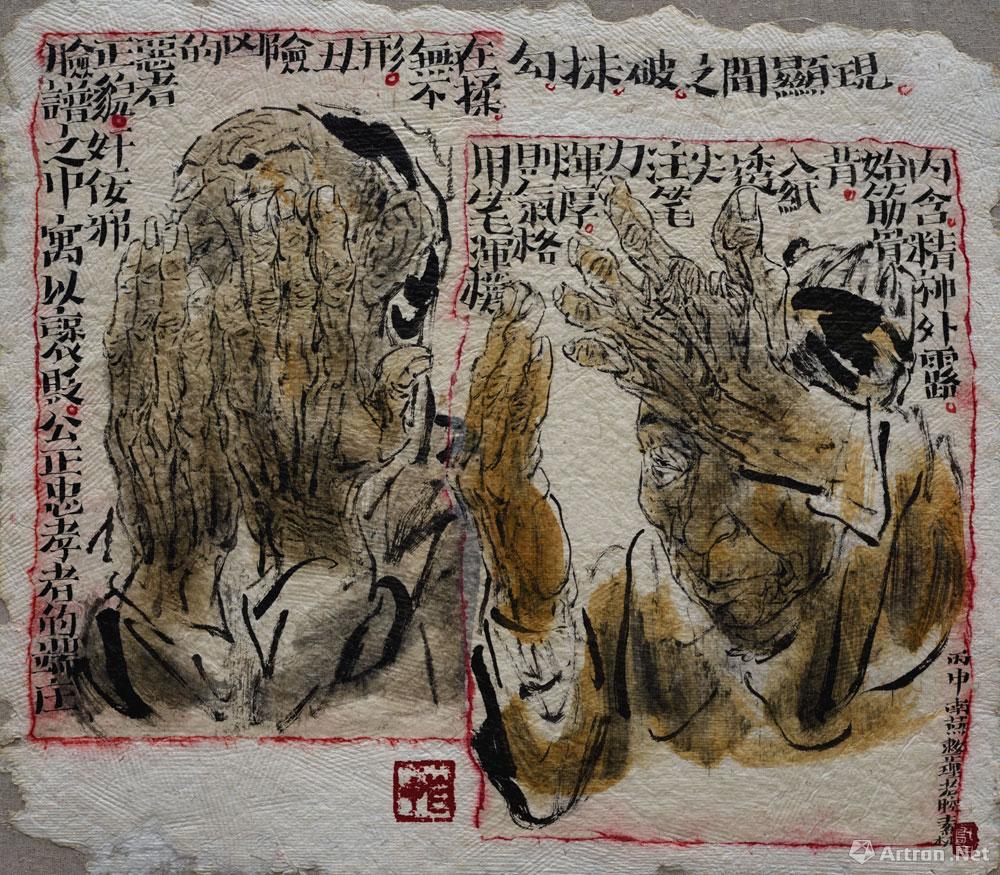 臉譜之中寓以褒貶公正忠孝者的端庄
正貌奸佞邪
惡者
的凶險丑形
無不
在揉
勾抹破之間顯現
用笔渾樸
則氣格
渾厚
力
注笔
尖
透
入紙
背
始筋骨
内含精神外露
丙申南燕整理老腔素材
Artron.Net